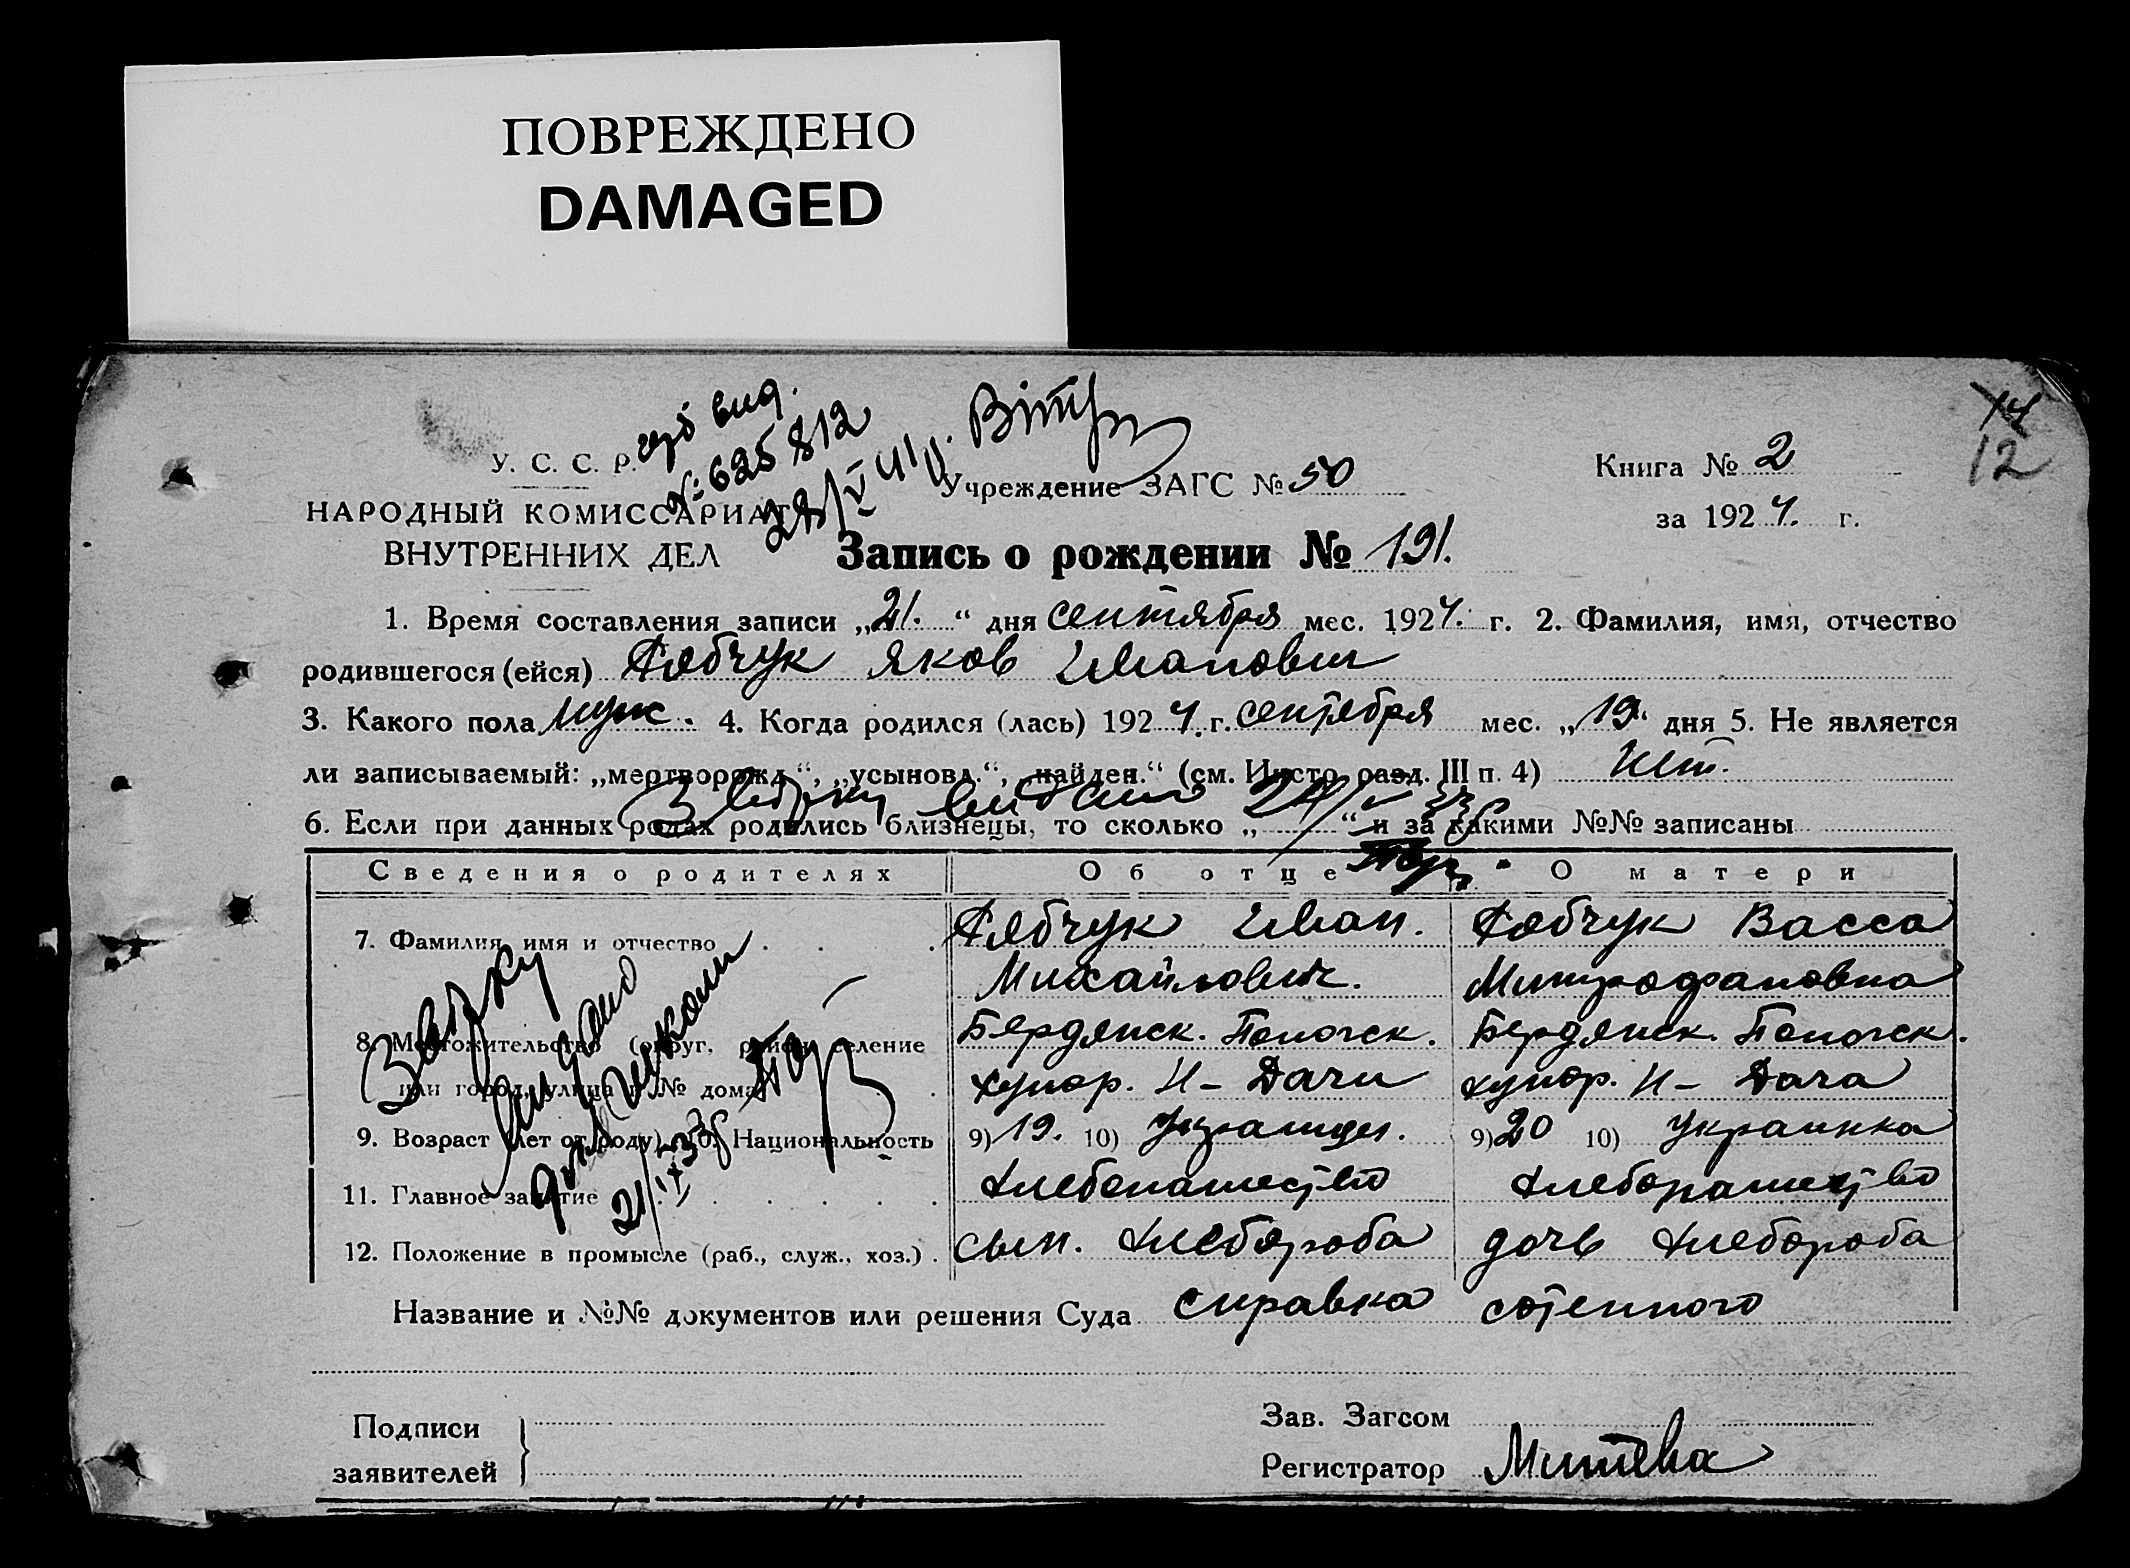 ПОВРЕЖДЕНО
DAMAGED
14
12
вид.
№ 625812
28/V 41 г.
У. С. С. Р.
НАРОДНЫЙ КОМИССАРИАТ
ВНУТРЕННИХ ДЕЛ
Учреждение ЗАГС № 50
Книга № 2
за 1924. г.
Запись о рождении № 191.
1. Время составления записи „21.“ дня сентября мес. 1924. г. 2. Фамилия, имя, отчество
родившегося (ейся) Рябчук Яков Иванович
3. Какого пола муж. 4. Когда родился (лась) 1924. г. сентября мес. „19“ дня 5. Не является
ли записываемый: „мертворожд.“, „усыновл.“, „найден.“ (см. Инстр. разд. III п. 4) Нет.
6. Если при данных родах родились близнецы, то сколько „ “ и за какими №№ записаны
Сведения о родителях Об отце О матери
7. Фамилия, имя и отчество Рябчук Иван. Рябчук Васса
Михайлович. Митрофановна
8. Местожительство (округ, район, селение Бердянск. Пологск. Бердянск. Пологск.
или город, улица и № дома) хутор. Н-Дачи хутор. Н-Дача
9. Возраст (лет от роду) 10. Национальность 9) 19. 10) Украинец. 9) 20 10) Украинка
11. Главное занятие Хлебопашество Хлебопашество
12. Положение в промысле (раб., служ., хоз.) сын. хлебороба дочь хлебороба
Название и №№ документов или решения Суда справка сотенного
Подписи
заявителей
Зав. Загсом
Регистратор